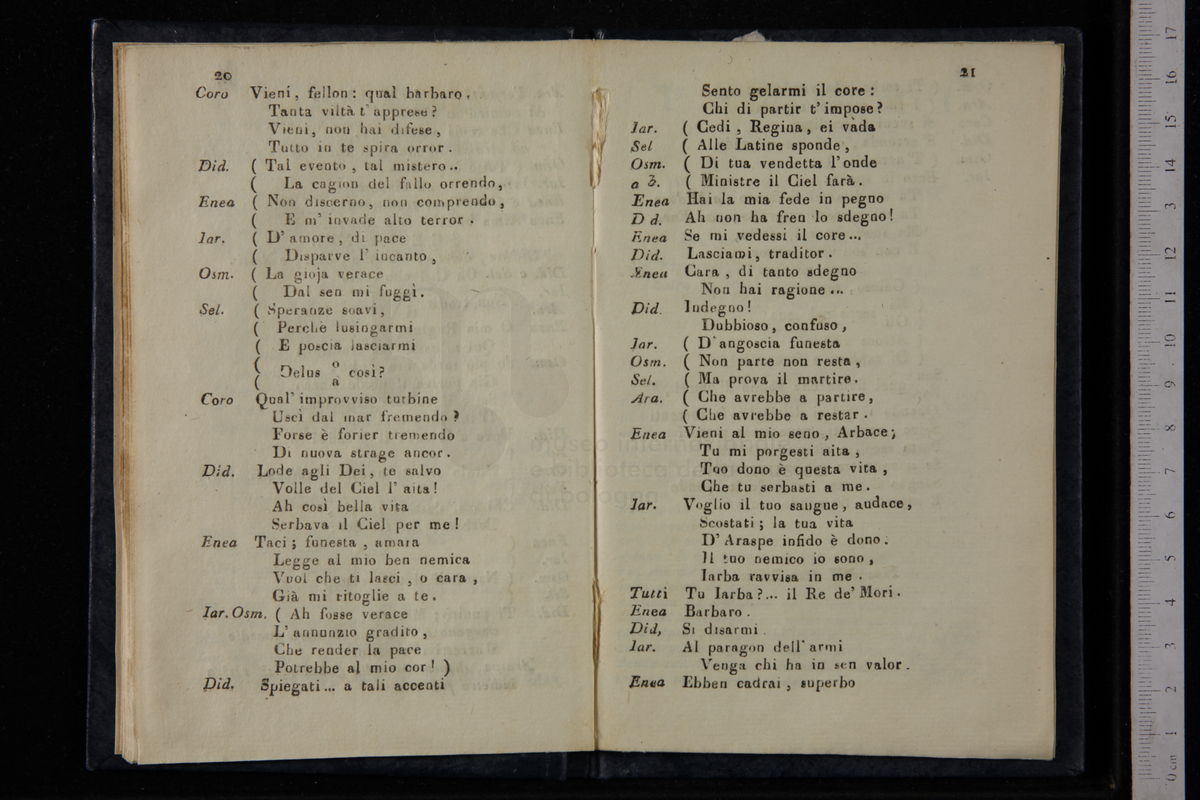 20
Coro Vieni, fellon: qual barbaro,
Tanta viltà t'apprese?
Vieni, non hai difese,
Tutto in te spira orror.
Did. ( Tal evento, tal mistero..
( La cagion del fallo orrendo,
Enea ( Non discerno, non comprendo,
( E m' invade alto terror.
Iar. ( D' amore, di pace
( Disparve l' incanto,
Osm. ( La gioja verace
( Dal sen mi fuggì.
Sel. ( Speranze soavi,
( Perchè lusingarmi
( E poscia lasciarmi
( o
Delus così?
( a
Coro Qual' improvviso turbine
Uscì dal mar fremendo?
Forse è forier tremendo
Di nuova strage ancor.
Did. Lode agli Dei, te salvo
Volle del Ciel l' aita!
Ah così bella vita
Serbava il Ciel per me!
Enea Taci; funesta, amara
Legge al mio ben nemica
Vuol che ti lasci, o cara,
Già mi ritoglie a te.
Iar. Osm. ( Ah fosse verace
L' annunzio gradito,
Che render la pace
Potrebbe al mio cor! )
Did. Spiegati... a tali accenti
21
Sento gelarmi il core:
Chi di partir t' impose?
Iar. ( Cedi, Regina, ei vada
Sel ( Alle Latine sponde,
Osm. ( Di tua vendetta l' onde
a 3. ( Ministre il Ciel farà.
Enea Hai la mia fede in pegno
D d. Ah non ha fren lo sdegno!
Enea Se mi vedessi il core...
Did. Lasciami, traditor.
Enea Cara, di tanto sdegno
Non hai ragione...
Did. Indegno!
Dubbioso, confuso,
Iar. ( D' angoscia funesta
Osm. ( Non parte non resta,
Sel. ( Ma prova il martire.
Ara. ( Che avrebbe a partire,
( Che avrebbe a restar.
Enea Vieni al mio seno, Arbace;
Tu mi porgesti aita,
Tuo dono è questa vita,
Che tu serbasti a me.
Iar. Voglio il tuo sangue, audace,
Scostati; la tua vita
D' Araspe infido è dono.
Il tuo nemico io sono,
Iarba ravvisa in me.
Tutti Tu Iarba?... il Re de' Mori.
Enea Barbaro.
Did, Si disarmi.
Iar. Al paragon dell' armi
Venga chi ha in sen valor.
Enea Ebben cadrai, superbo
0 cm 1 2 3 4 5 6 7 8 9 10 11 12 13 14 15 16 17